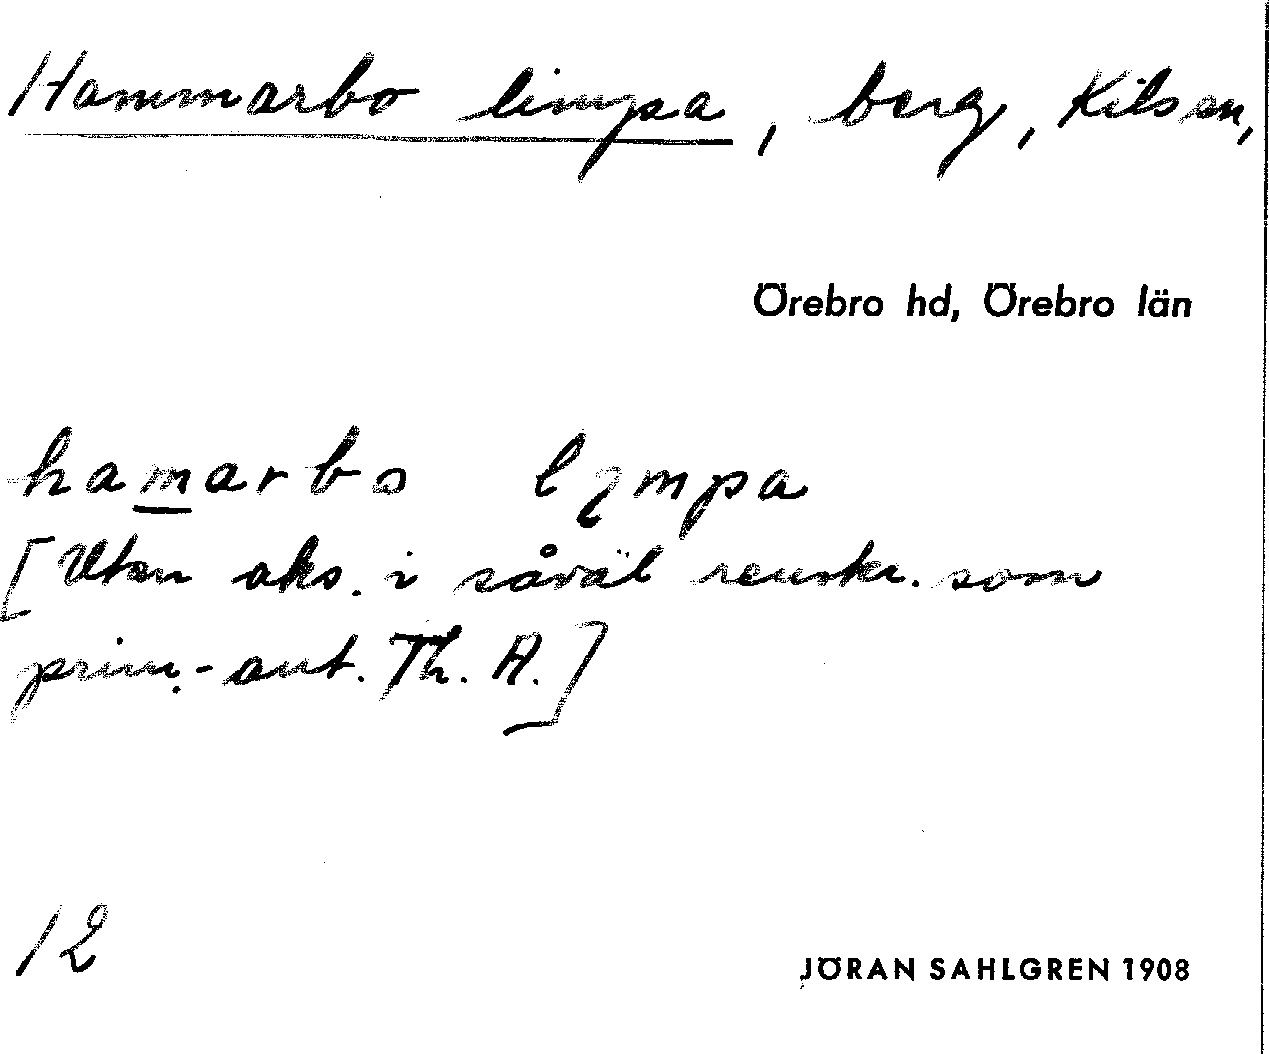 Hammarbo limpa, berg, Kilsm,
Örebro hd, Örebro län
hamarbo lympa
[Utan aks. i såväl renskr. som
prim.-ant. Th. A.]
12
JÖRAN SAHLGREN 1908